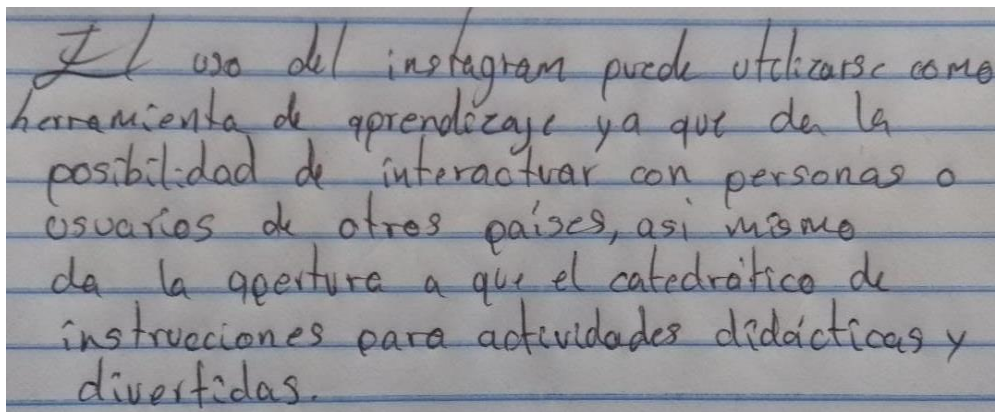 El uso del instagram puede utilizarse como
herramienta de aprendizaje ya que da la
posibilidad de interactuar con personas o
usuarios de otros países, asi mismo
da la apertura a que el catedrático de
instrucciones para actividades didácticas y
divertidas.